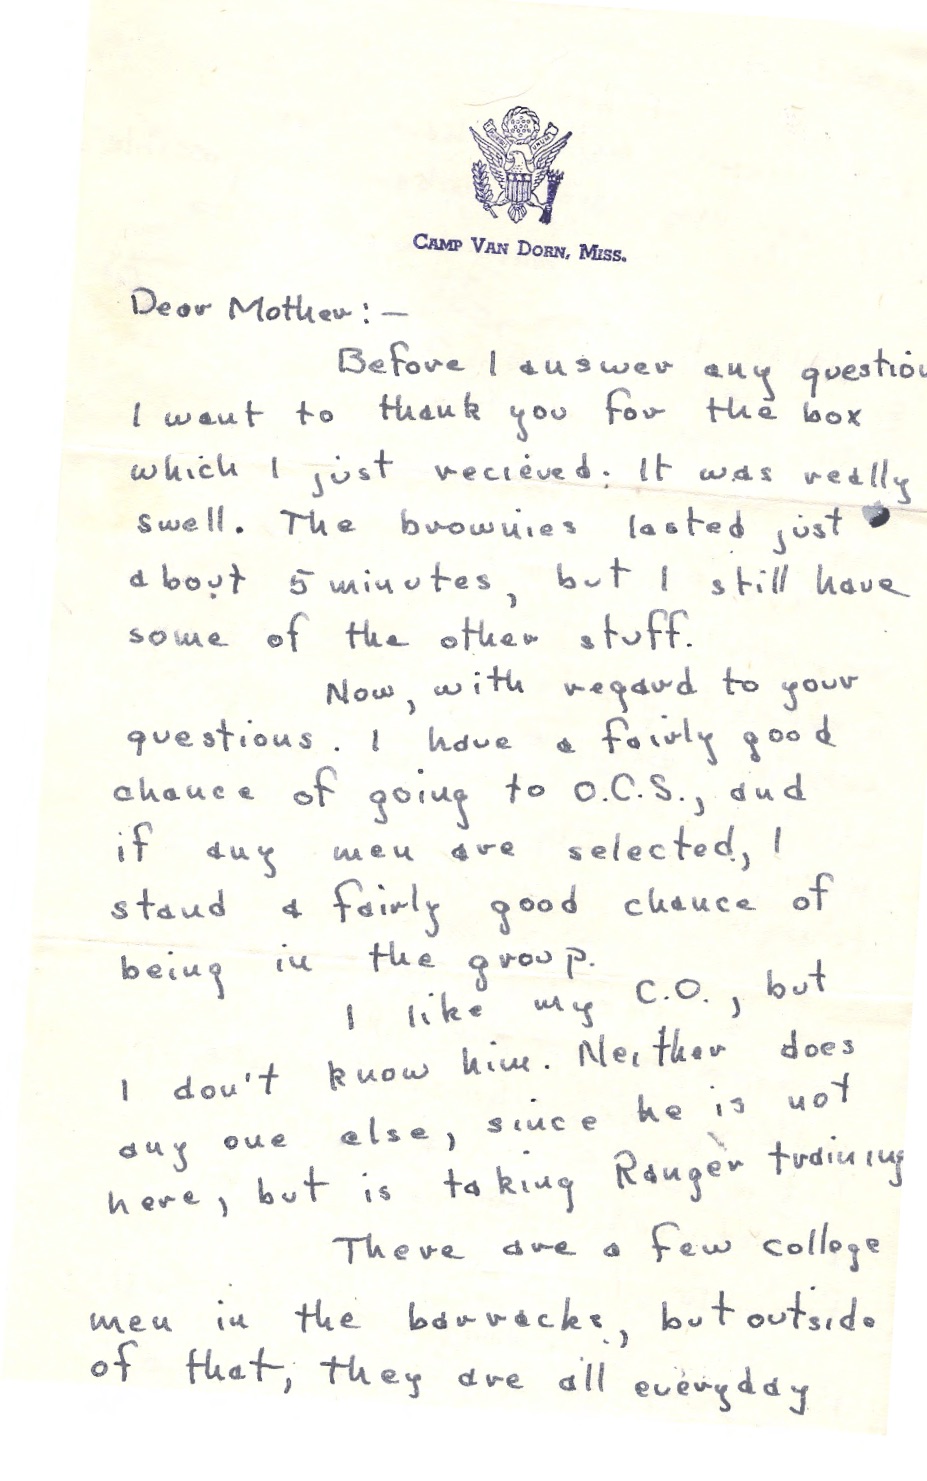 CAMP VAN DORN, MISS.
Dear Mother:—
Before I answer any question
I want to thank you for the box
which I just recieved. It was really
swell. The brownies lasted just
about 5 minutes, but I still have
some of the other stuff.
Now, with regard to your
questions. I have a fairly good
chance of going to O.C.S., and
if any men are selected, I
stand a fairly good chance of
being in the group.
I like my C.O., but
I don't know him. Neither does
any one else, since he is not
here, but is taking Ranger training
There are a few college
men in the barracks, but outside
of that, they are all everyday